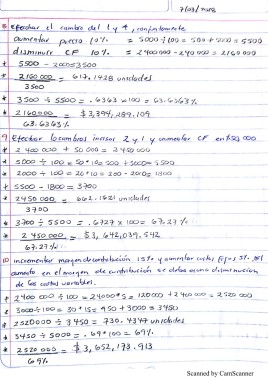 7/03/2022
8 Efectuar el cambio del 1 y 4, conjuntamente
aumentar precio 10% = 5000÷100 = 50*10=500+5000 = 5500
disminuir CF 10% = 2400000-240000 = 2160000
* 5500 - 2000=3500
* 2160000 = 617.1428 unidades
3500
* 3500 ÷ 5500 = .6363 x 100 = 63.6363%
* 2160000 = $3,394,289.109
63.6363%
9 Efectuar los cambios incisos 2 y 1 y aumentar CF en $50,000
* 2400000 + 50000 = 2450000
* 5000 ÷ 100 = 50*10=500+5000=5500
* 2000 ÷ 100 = 20*10=200-2000=1800
* 5500-1800=3700
* 2450000 = 662.1621 unidades
3700
* 3700 ÷ 5500 = .6727 x 100= 67.27%
* 2450000 = $3,642,039,542
67.27%
10 incrementar margen de contribución 15% y aumentar costos fijos 5%, el
aumento en el margen de contribución se debe a una disminución
de los costos variables.
* 2400000 ÷ 100 = 24000*5 = 120000 + 2400000 = 2520000
* 3000÷100 = 30*15= 450 + 3000 = 3450
* 2520000 ÷ 3450 = 730.4347 unidades
* 3450 ÷ 5000 = .69*100 = 69%
* 2520000 = $3,652,173.913
69%
Scanned by CamScanner